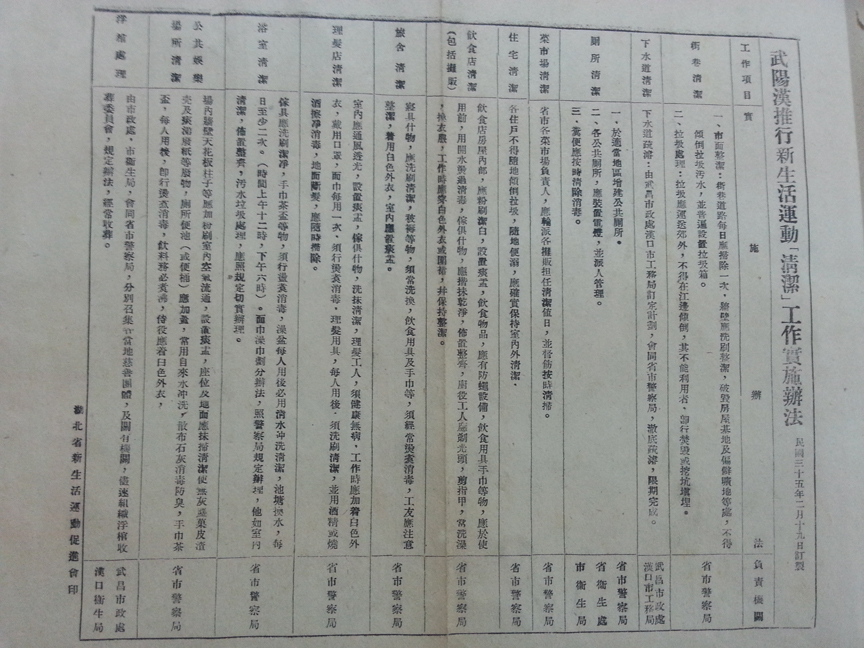 武陽漢推行新生活運動「清潔」工作實施辦法
民國三十五年二月十九日訂製
工作項目
實施辦法
負責機關
街巷清潔
一、市面整潔:街巷道路每日應掃除一次,牆壁應洗刷整潔,破毀房屋基地及偏僻曠地等處,不得
傾倒垃圾污水,並普遍設置垃圾箱。
二、垃圾處理:垃圾應運送郊外,不得在江邊傾倒,其不能利用者,卽行焚燬或挖坑填埋。
省市警察局
下水道清潔
下水道疏濬:由武昌市政處漢口市工務局訂定計劃,會同省市警察局,澈底疏濬,限期完成。
武昌市政處
漢口市工務局
廁所清潔
一、於適當地區增建公共廁所。
二、各公共廁所,應裝置電燈,並派人管理。
三、糞便應按時清除消毒。
省市警察局
省衛生處
市衛生局
菜市場清潔
省市各菜市場負責人,應輪派各攤販担任清潔值日,並督飭按時清掃。
省市警察局
住宅清潔
各住戶不得隨地傾倒垃圾,隨地便溺,應確實保持室內外清潔。
省市警察局
飲食店清潔
(包括攤販)
飲食店房屋內部,應粉刷潔白,設置痰盂,飲食物品,應有防蠅設備,飲食用具手巾等物,應於使
用前,用開水燙過消毒,傢俱什物,應揩抹乾淨,佈置整齊,廚役工人應剃光頭,剪指甲,常洗澡
,換衣服,工作時應穿白色外衣或圍裙,并保持整潔。
省市警察局
旅舍清潔
寢具什物,應洗刷清潔,被褥等物,須常洗換,飲食用具及手巾等,須經常煑沸消毒,工友應注意
整潔,着用白色外衣,室內應設置痰盂。
省市警察局
理髮店清潔
室內應通風透光,設置痰盂,傢俱什物,洗抹清潔,理髮工人,須健康無病,工作時應加着白色外
衣,戴用口罩,面巾每用一次,須行煑沸消毒,理髮用具,每人用後,須洗刷清潔,並用酒精或燒
酒擦淨消毒,地面斷髮,應隨時掃除。
省市警察局
浴室清潔
傢俱應洗刷潔淨,手巾茶盃等物,須行煑沸消毒,澡盆每人用後必用清水冲洗清潔,池塘換水,每
日至少二次。(時間上午十二時,下午六時)。面巾澡巾劃分辦法,照警察局規定辦理,他如室內
清潔,佈置整齊,污水垃圾處理,應照規定切實辦理。
省市警察局
公共娛樂
場所清潔
場內牆壁天花板柱子等應加粉刷室內空氣流通,設置痰盂,座位及地面應抹掃清潔使無灰塵菓皮渣
壳及痰涕廢紙等廢物,廁所便池(或便桶)應加蓋,常用自來水冲洗,散布石灰消毒防臭,手巾茶
盃,每人用後,卽行煑沸消毒,飲料務必煑沸,侍役應着白色外衣,
省市警察局
浮棺處理
由市政處、市衛生局,會同省市警察局,分別召集當地慈善團體,及關有機關,儘速組織浮棺收
葬委員會,規定辦法,經常收葬。
武昌市政處
漢口衛生局
湖北省新生活運動促進會印